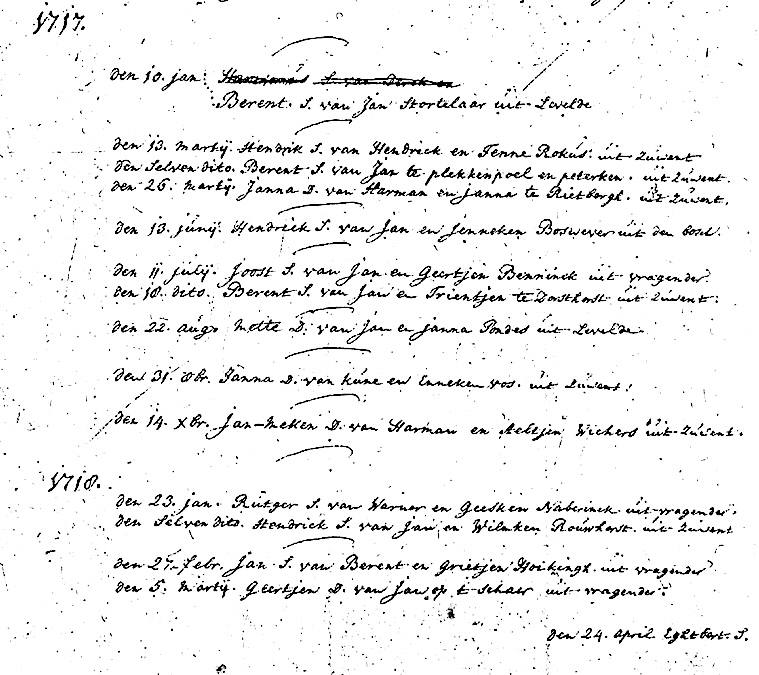 1717.
den 10. jan: Harmanus S. van Derck en
Berent. S. van Jan Stortelaar uit Levelde
den 13. Martij. Hendrik S. van Hendrick en Fenne Rokus. uit Zuwent
den Selven dito. Berent S. van Jan te plekkenpoel en peterken. uit Zuwent.
den 26. Martij. Janna D. van Harman en Janna te Rietbergh. uit Zuwent.
den 13. junij. Hendrick S. van Jan en Jenneken Boswever uit den bosch.
den 11. julij. Joost S. van Jan en Geertjen Benninck uit vragender.
den 18. dito. Berent S. van Jan en Trientjen te Dorsthorst uit Zuwent.
den 22. augo Mette D. van Jan en Janna Pondes uit Levelde
den 31. 8br. Janna D. van Kune en Enneken vos. uit Zuwent.
den 14. xbr. Jan-Meken D. van Harman en Aeltjen Wichers uit Zuwent.
1718.
den 23. jan. Rutger S. van Warner en Geesken Naberinck uit vragender.
den Selven dito. Hendrick S. van Jan en Wilmken Rouwhorst. uit Zuwent
den 27. febr. Jan S. van Berent en Grietjen Hoikingk. uit vragender
den 5. Martij. Geertjen D. van Jan op t Schaer uit vragender.
den 24. April Eghtbert. S.